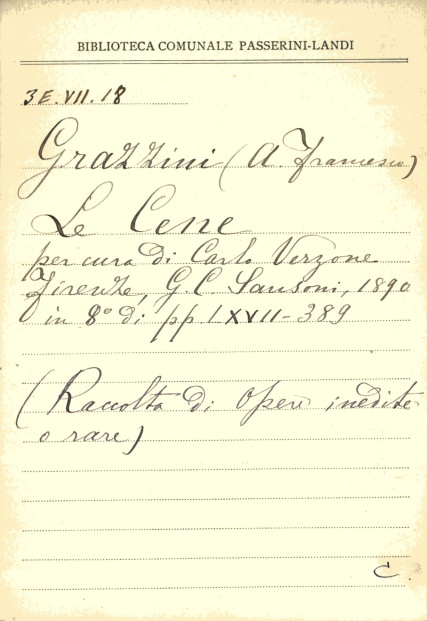 BIBLIOTECA COMUNALE PASSERINI-LANDI
3E.VII.18
Grazzini (A. Francesco)
Le Cene
per cura di Carlo Verzone
Firenze, G. C. Sansoni, 1890
in 8° di pp LXVII-389
(Raccolta di Opere inedite
o rare)
C.